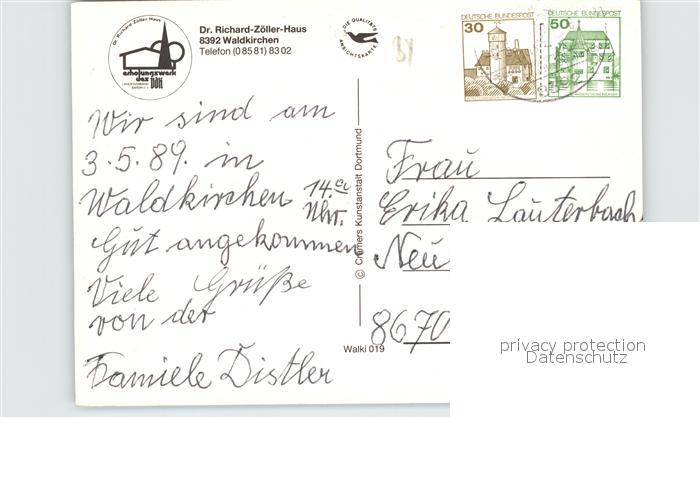 Dr. Richard Zöller Haus
erholungswerk
des VdK
Dr. Richard-Zöller-Haus
8392 Waldkirchen
Telefon (0 85 81) 83 02
DIE QUALITÄTS
ANSICHTSKARTE
BY
DEUTSCHE BUNDESPOST
30
DEUTSCHE BUNDESPOST
50
Wir sind am
3.5.89. in
Waldkirchen 14.00
Uhr.
Gut angekommen
Viele Grüße
von der
Familele Distler
© Cramers Kunstanstalt Dortmund
Walki 019
Frau
Erika Lauterbach
Neu
8670
privacy protection
Datenschutz